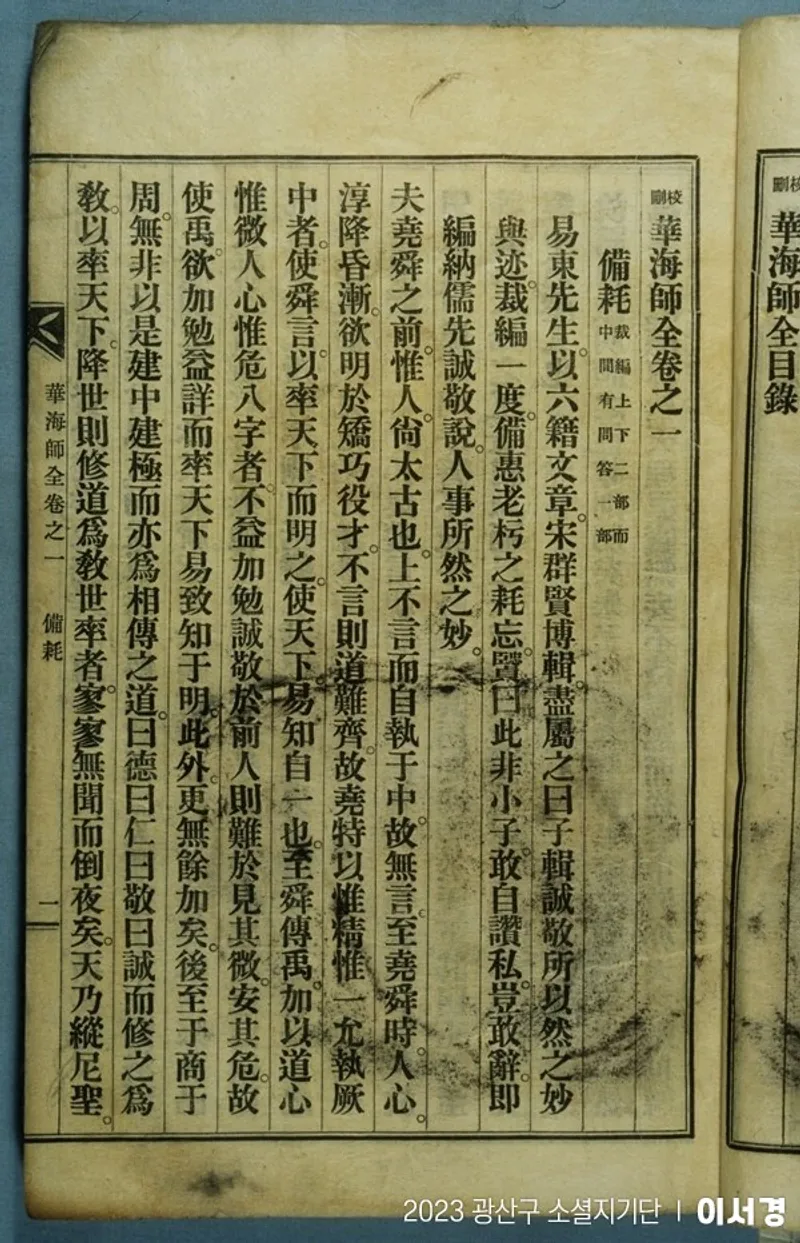 校刪 華海師全目錄
校刪 華海師全卷之一
備耗 裁編上下二部而中間有問答一部
易東先生。以六籍文章。宋群賢博輯。盡屬之曰子輯誠敬所以然之妙
與迹。裁編一度。備惠老朽之耗忘。賢曰此非小子。敢自讚私。豈敢辭。即
編納儒先誠敬說。人事所然之妙。
夫堯舜之前。惟人。尙太古也。上不言而自執于中。故無言至堯舜時。人心。
淳降昏漸。欲明於矯巧役才。不言則道難齊。故堯特以惟精惟一允執厥
中者。使舜言。以率天下而明之。使天下易知自一也。至舜傳禹。加以道心
惟微人心惟危八字者。不益加勉誠敬於前人則難於見其微。安其危。故
使禹。欲加勉益詳而率天下易致知于明。此外。更無餘加矣。後至于商于
周。無非以是建中建極而亦爲相傳之道。曰德曰仁曰敬曰誠而修之爲
敎。以率天下。降世則修道爲敎世率者。寥寥無聞而倒夜矣。天乃縱尼聖。
華海師全卷之一 備耗 一
2023 광산구 소셜지기단 | 이서경